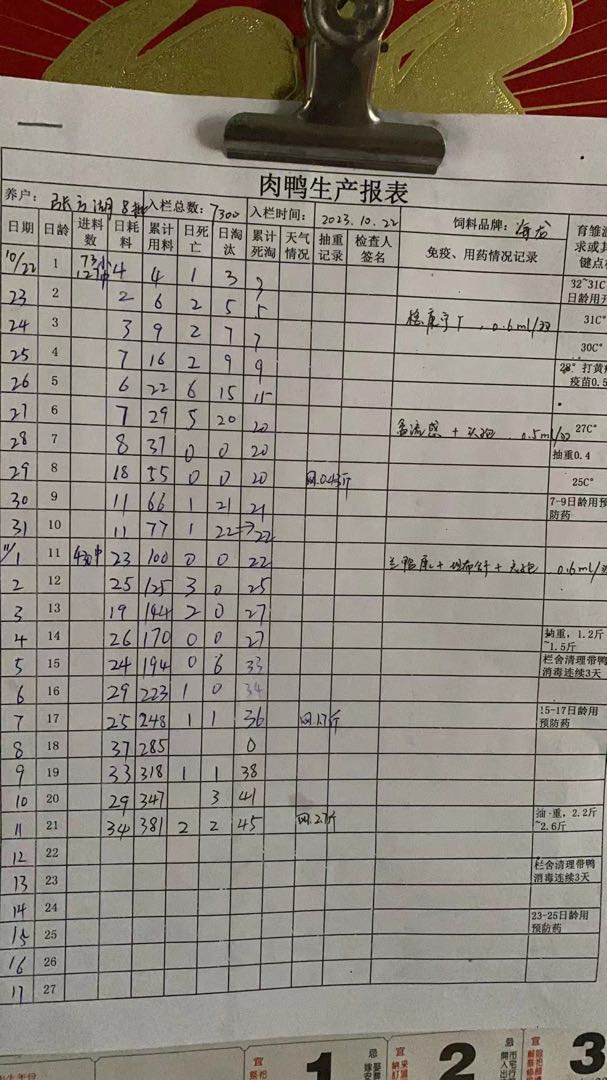 肉鸭生产报表
养户： 入栏总数：7300 入栏时间： 2023.10.22 饲料品牌：海龙
日期 日龄 进料数 日耗料 累计用料 日死亡 日淘汰 累计死淘 天气情况 抽重记录 检查人签名 免疫、用药情况记录
10/22 1 4 4 1 3 32~31C
23 2 2 6 2 5 5 日龄用
24 3 3 9 2 7 7 0.6ml/ 31C°
25 4 7 16 2 9 9 30C°
26 5 6 22 6 15 15 28° 打黄 疫苗0.5
27 6 7 29 5 20 20 0.5ml/ 27C°
28 7 8 37 0 0 20 抽重0.4
29 8 18 55 0 0 20 0.43斤 25C°
30 9 11 66 1 21 21 7-9日龄用预防药
31 10 11 77 1 22→22
11/1 11 23 100 0 0 22 0.6ml/
2 12 25 125 3 0 25
3 13 19 144 2 0 27
4 14 26 170 0 0 27 抽重，1.2斤~1.5斤
5 15 24 194 0 6 33 栏舍清理带鸭消毒连续3天
6 16 29 223 1 0 34
7 17 25 248 1 1 36 1.17斤 15-17日龄用预防药
8 18 37 285 0
9 19 33 318 1 1 38
10 20 29 347 3 41
11 21 34 381 2 2 45 2.7斤 抽·重，2.2斤~2.6斤
12 22
13 23 栏舍清理带鸭消毒连续3天
14 24
15 25 23-25日龄用预防药
16 26
17 27
宜 1 忌 宜 2 忌 宜 3